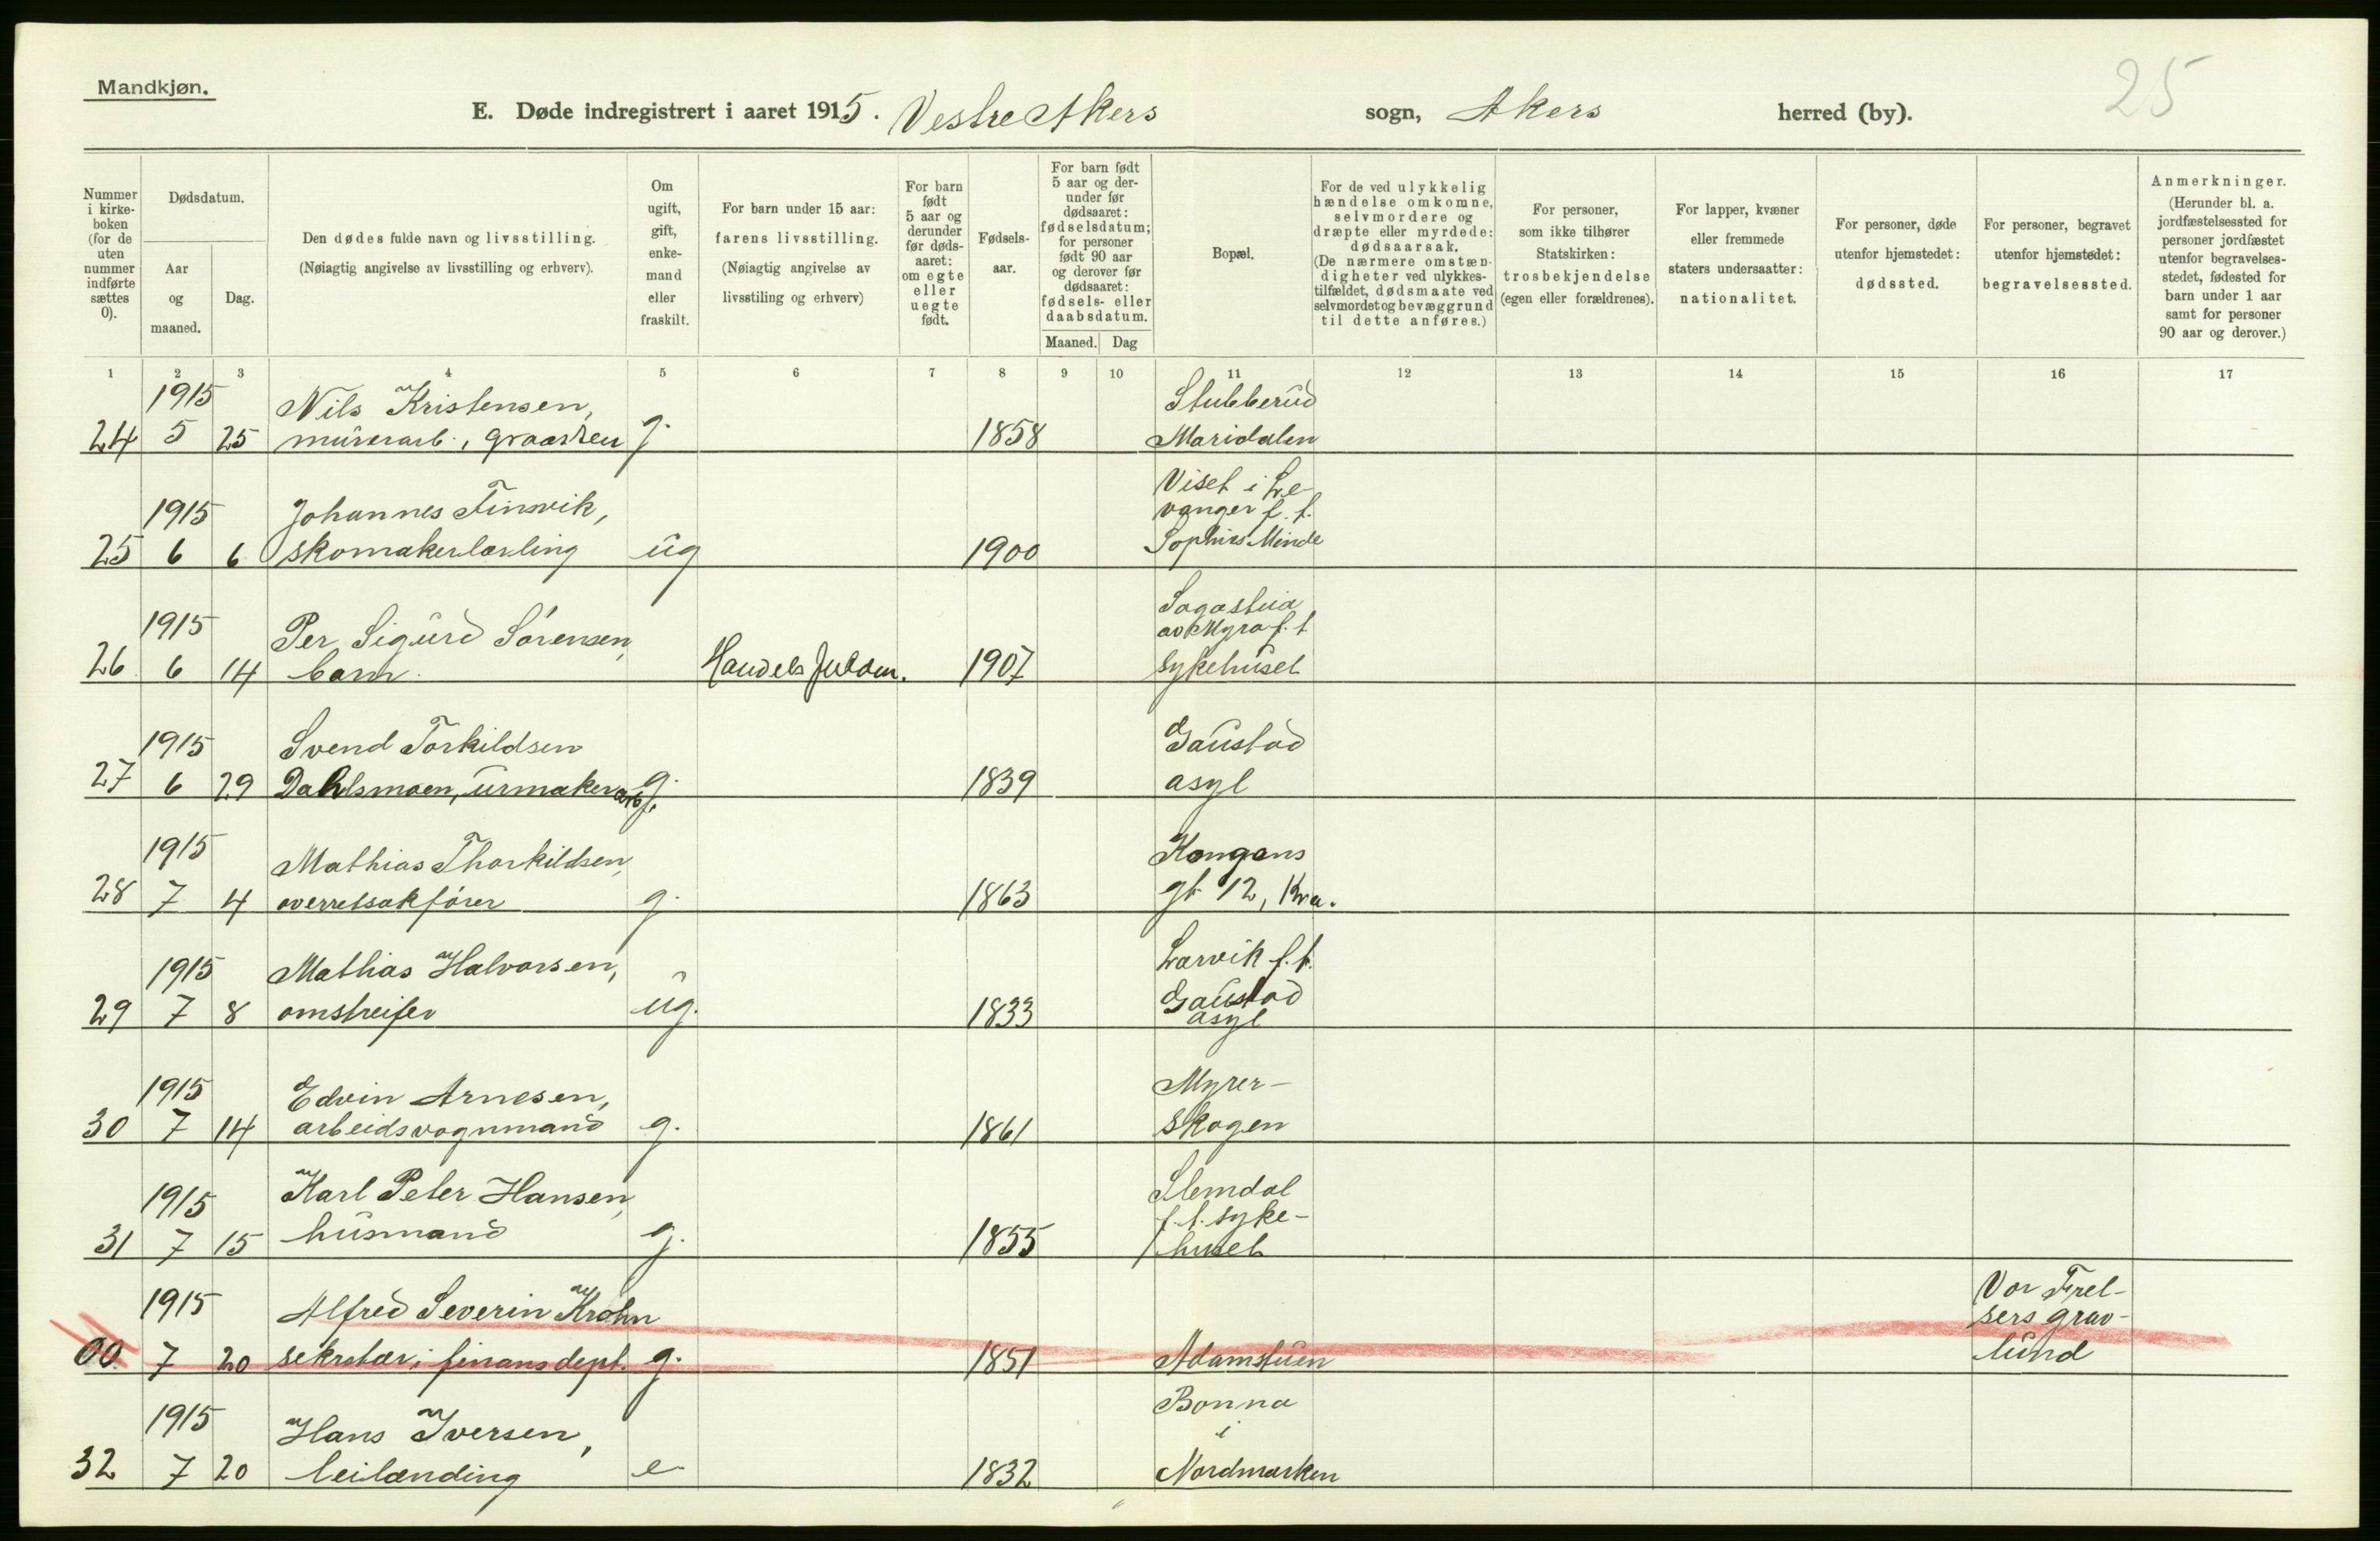 Mandkjøn.
25
E. Døde indregistrert i aaret 1915. Vestre Akers sogn, Akers herred (by).
Nummer i kirkeboken (for de uten nummer indførte sættes 0).
Dødsdatum.
Aar og maaned.
Dag.
Den dødes fulde navn og livsstilling.
(Nøiagtig angivelse av livsstilling og erhverv).
Om ugift, gift, enkemand eller fraskilt.
For barn under 15 aar:
farens livsstilling.
(Nøiagtig angivelse av
livsstiling og erhverv)
For barn født 5 aar og derunder før dødsaaret: om egte eller uegte født.
Fødselsaar.
For barn født 5 aar og derunder før dødsaaret: fødselsdatum; for personer født 90 aar og derover før dødsaaret: fødsels- eller daabsdatum.
Maaned. Dag
Bopæl.
For de ved ulykkelig hændelse omkomne, selvmordere og dræpte eller myrdede: dødsaarsak. (De nærmere omstændigheter ved ulykkestilfældet, dødsmaate ved selvmordet og bevæggrund til dette anføres.)
For personer, som ikke tilhører Statskirken: trosbekjendelse (egen eller forældrenes).
For lapper, kvæner eller fremmede staters undersaatter: nationalitet.
For personer, døde utenfor hjemstedet: dødssted.
For personer, begravet utenfor hjemstedet: begravelsessted.
Anmerkninger. (Herunder bl. a. jordfæstelsessted for personer jordfæstet utenfor begravelsesstedet, fødested for barn under 1 aar samt for personer 90 aar og derover.)
1 2 3 4 5 6 7 8 9 10 11 12 13 14 15 16 17
1915 Nils Kristensen, Stubberud
24 5 25 murerarb., graasten g. 1858 Maridalen
Viset i Le-
1915 Johannes Finsvik, vanger f. t.
25 6 6 skomakerlærling ug 1900 Sophies Minde
Sagastua
1915 Per Sigurd Sørensen, av Myra f. t.
26 6 14 barn. Handels 1907 sykehuset
1915 Svend Torkildsen Gaustad
27 6 29 Dahlsmoen, urmakerarb. g. 1839 asyl
1915 Mathias Thorkildsen, Kongens
28 7 4 overretsakfører g. 1863 gt 12, Kra.
1915 Mathias Halvorsen, Larvik f. t.
29 7 8 omstreifer ug. 1833 Gaustad
asyl
1915 Edvin Arnesen, Myrer-
30 7 14 arbeidsvognmand g. 1861 skogen
1915 Karl Peter Hansen, Slemdal
f. t. syke-
31 7 15 husmand g. 1855 huset
1915 Alfred Severin Krohn Vor Frel-
sers grav-
00. 7 20 sekretær i finansdept. g. 1851 Adamstuen lund
1915 Hans Iversen, Bonna
i
32 7 20 leilænding e 1832 Nordmarken